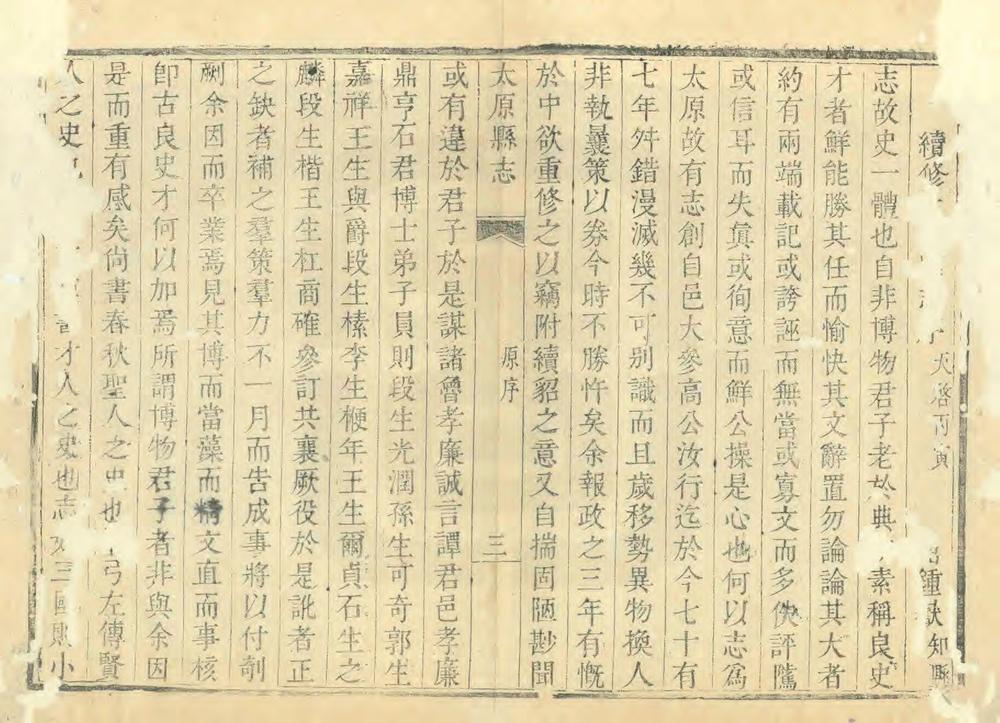 續修
天啓丙寅
鍾 知縣
志故史一體也自非博物君子老於典 素稱良史
才者鮮能勝其任而愉快其文辭置勿論論其大者
約有兩端載記或誇誣而無當或寡文而多佚評隲
或信耳而失眞或徇意而鮮公操是心也何以志爲
太原故有志創自邑大參高公汝行迄於今七十有
七年舛錯漫滅幾不可别識而且歲移勢異物換人
非執曩策以券今時不勝忤矣余報政之三年有慨
於中欲重修之以竊附續貂之意又自揣固陋尠聞
太原縣志
原序
三
或有違於君子於是謀諸魯孝廉誠言譚君邑孝廉
鼎亨石君博士弟子員則段生光潤孫生可奇郭生
嘉祥王生與爵段生榛李生楩年王生爾貞石生之
麟段生楷王生杠商確參訂共襄厥役於是訛者正
之缺者補之羣策羣力不一月而告成事將以付剞
劂余因而卒業焉見其博而當藻而精文直而事核
卽古良史才何以加焉所謂博物君子者非與余因
是而重有感矣尙書春秋聖人之史也 左傳賢
人之史 才人之史也志 三國則小